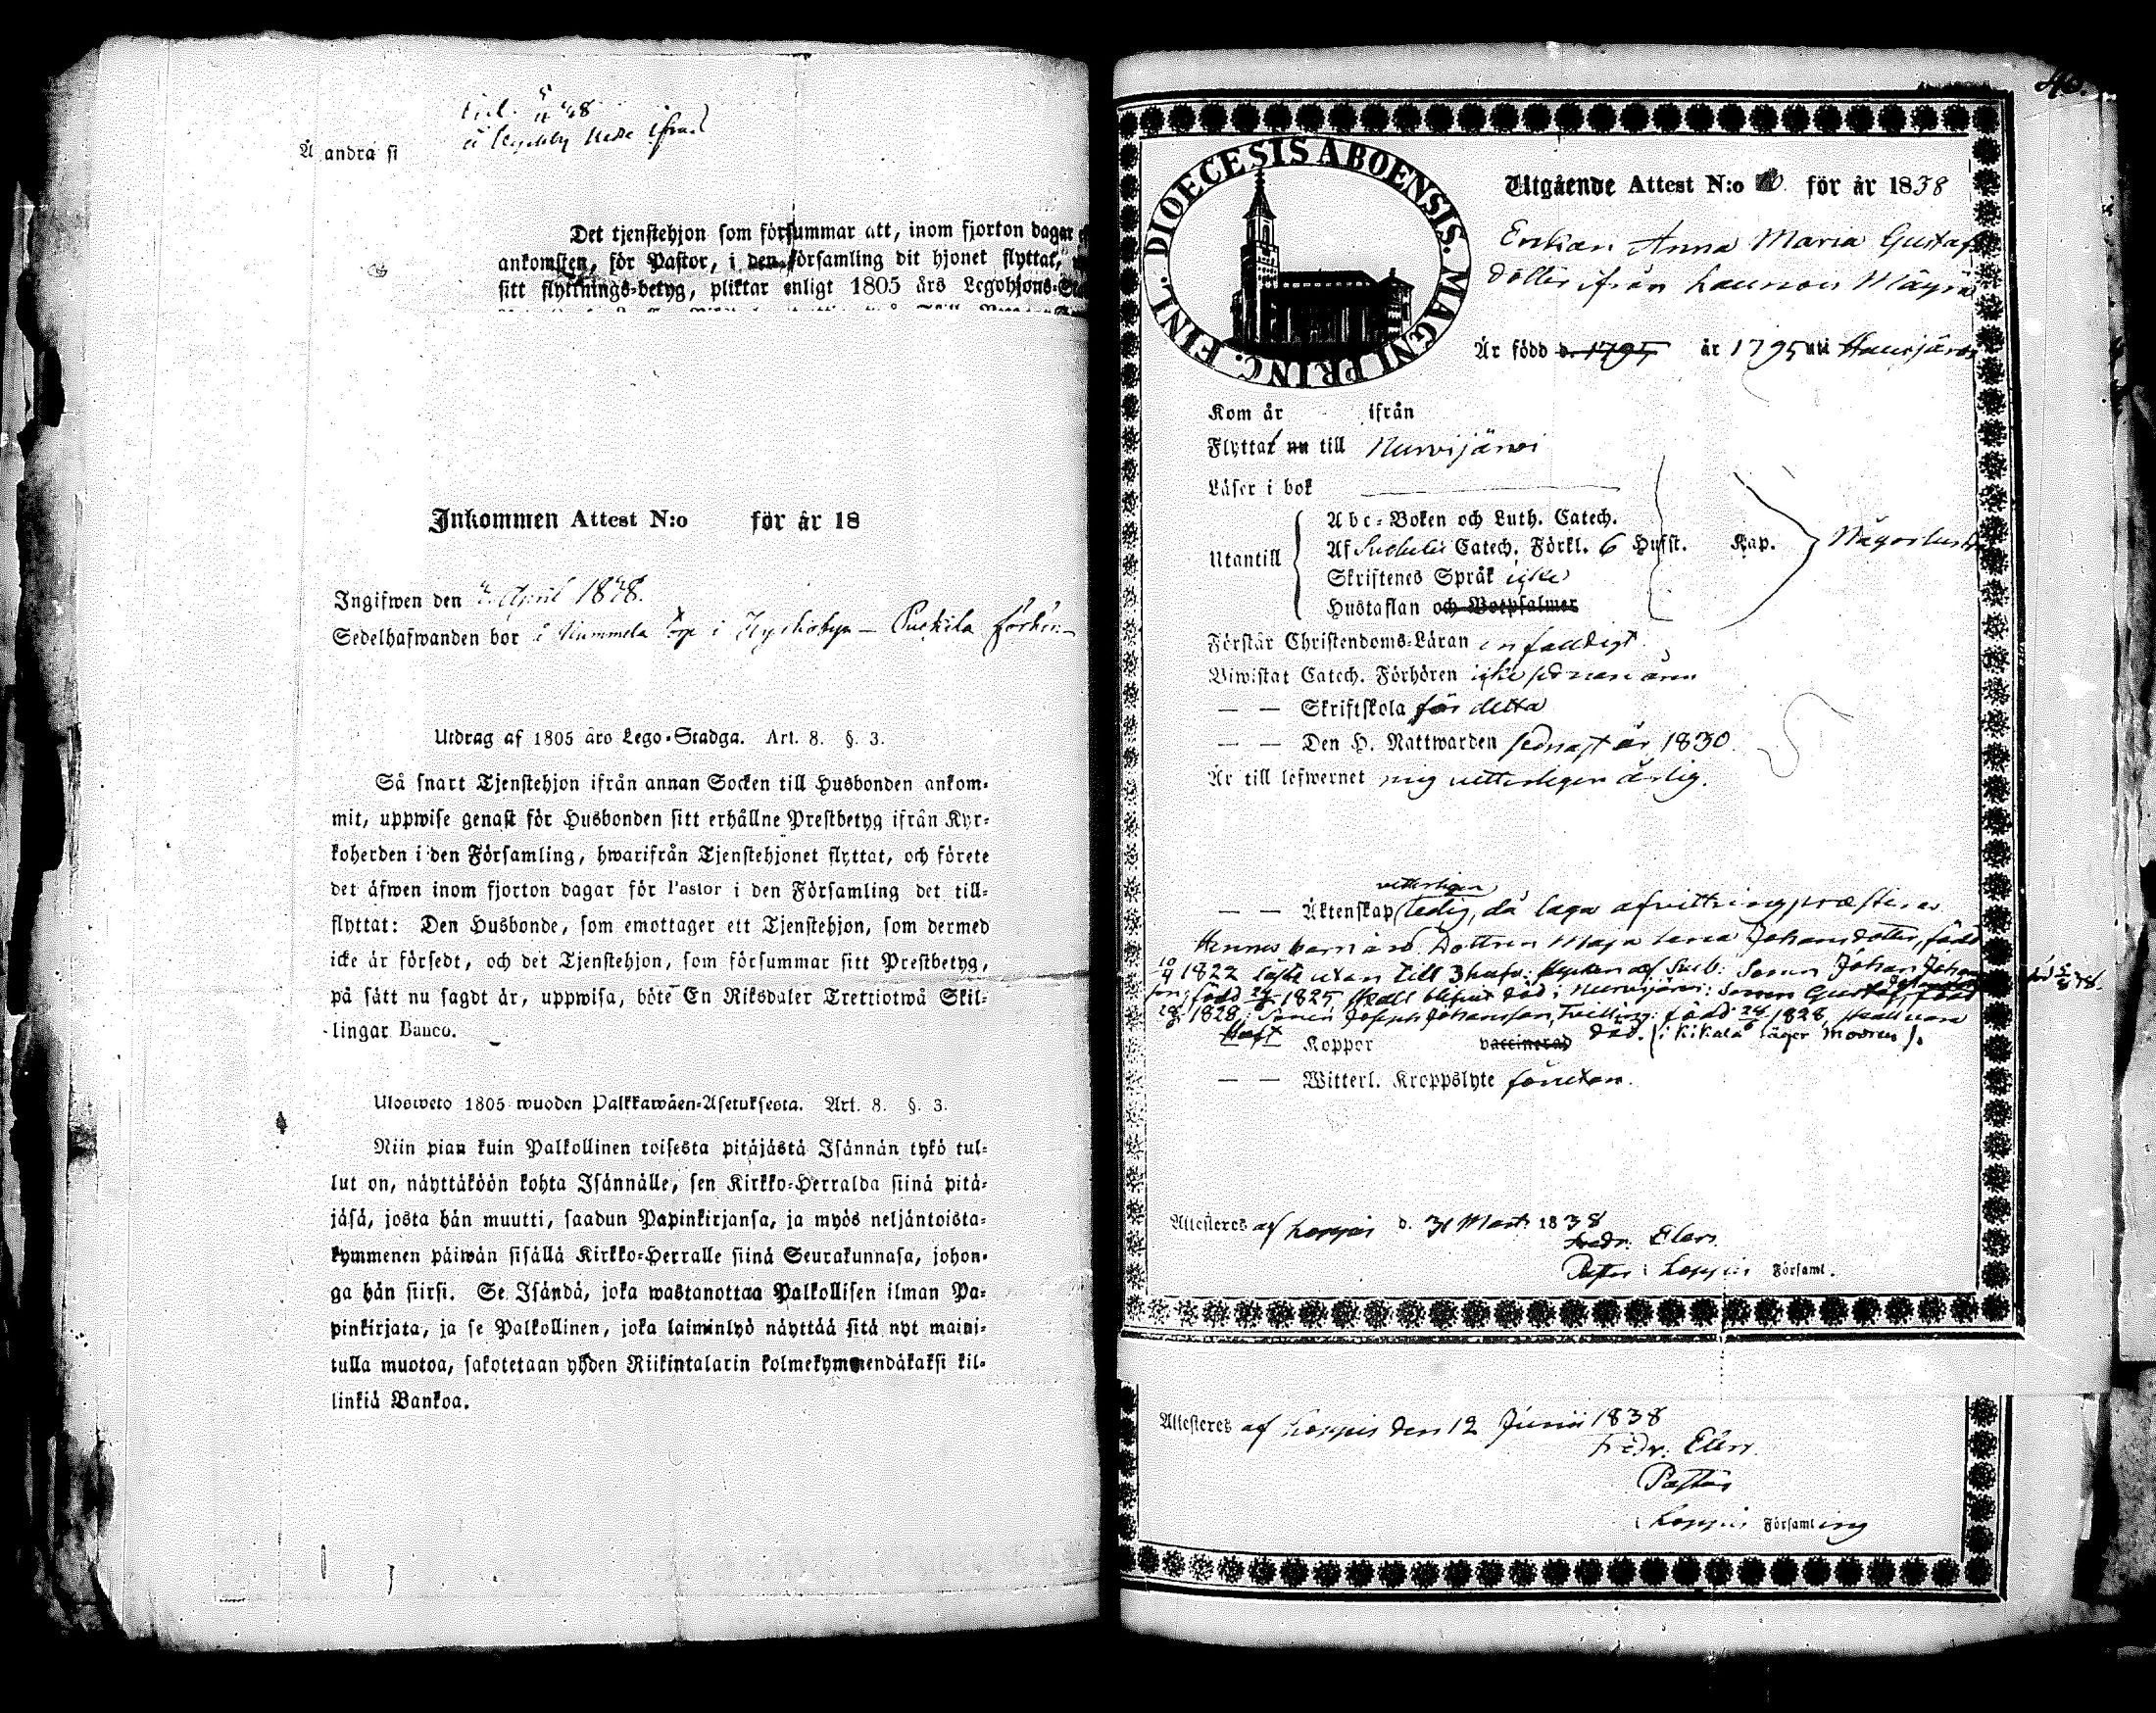 Å andra si
Det tjenstehjon som försummar att, inom fjorton dagar
ankomsten, för Pastor, i den församling dit hjonet flyttat,
sitt flyttnings-betyg, pliktar enligt 1805 års Legohjons-
Inkommen Attest N:o för år 18
Ingifwen den April 1838.
Sedelhafwanden bor i torp i
Utdrag af 1805 års Lego-Stadga. Art. 8. §. 3.
Så snart Tjenstehjon ifrån annan Socken till Husbonden ankom-
mit, uppwise genast för Husbonden sitt erhållne Prestbetyg ifrån Kyr-
koherden i den Församling, hwarifrån Tjenstehjonet flyttat, och förete
det äfwen inom fjorton dagar för Pastor i den Församling det till-
flyttat: Den Husbonde, som emottager ett Tjenstehjon, som dermed
icke är försedt, och det Tjenstehjon, som försummar sitt Prestbetyg,
på sätt nu sagdt är, uppwisa, böte En Riksdaler Trettiotwå Skil-
lingar Banco.
Ulosweto 1805 wuoden Palkkawäen-Asetuksesta. Art. 8. §. 3.
Niin pian kuin Palkollinen toisesta pitäjästä Isännän tykö tul-
lut on, näyttäköön kohta Isännälle, sen Kirkko-Herralda siinä pitä-
jäsä, josta hän muutti, saadun Papinkirjansa, ja myös neljäntoista-
kymmenen päiwän sisällä Kirkko-Herralle siinä Seurakunnasa, johon-
ga hän siirsi. Se Isändä, joka wastanottaa Palkollisen ilman Pa-
pinkirjata, ja se Palkollinen, joka laiminlyö näyttää sitä nyt maini-
tulla muotoa, sakotetaan yhden Riikintalarin kolmekymmendäkaksi kil-
linkiä Bankoa.
DIOECESIS ABOENSIS. MAGNI PRINC. FINL.
Utgående Attest N:o för år 1838
Enkan Anna Maria Gustafs
dotter ifrån Launois Mäyrä
Är född d. 1795 år 1795 uti Hausjärvi
Kom år ifrån
Flyttat nu till Nurmijärvi
Läser i bok
Utantill
Abc-Boken och Luth. Catech.
Af Suebelii Catech. Förkl. 6 Hufst. Kap.
Skriftenes Språk icke
Hustaflan och Botpsalmer
Någorlunda
Förstår Christendoms-Läran enfaldigt.
Biwistat Catech. Förhören icke sednare åren
— — Skriftskola för detta
— — Den H. Nattwarden sednast år 1830.
Är till lefwernet mig vetterligen ärlig.
vetterligen
— — Äktenskap ledig, då laga afvittring præsteras.
Hennes barn äro: Dottren Maja Lena Johansdotter, född
10/4 1822 läste utan till 3 hufv: stycken af Sveb: Sonen Johan Johans
son, född 1825, skall blifvit död i Nurmijärvi: Sonen Gustaf, född
1828; Sonen Joseph Johansson, tvilling: född 1828, skall vara
död. (: i Kikala säger modren :).
Haft Koppor vaccinerad
— — Witterl. Kroppslyte förutan.
Attesteres af Loppis d. 31 Mart. 1838
Fredr. Elers
Pastor i Loppis Församl.
Attesteres af Loppis den 12 Junii 1838
Fredr. Elers
Pastor
i Loppis Församling